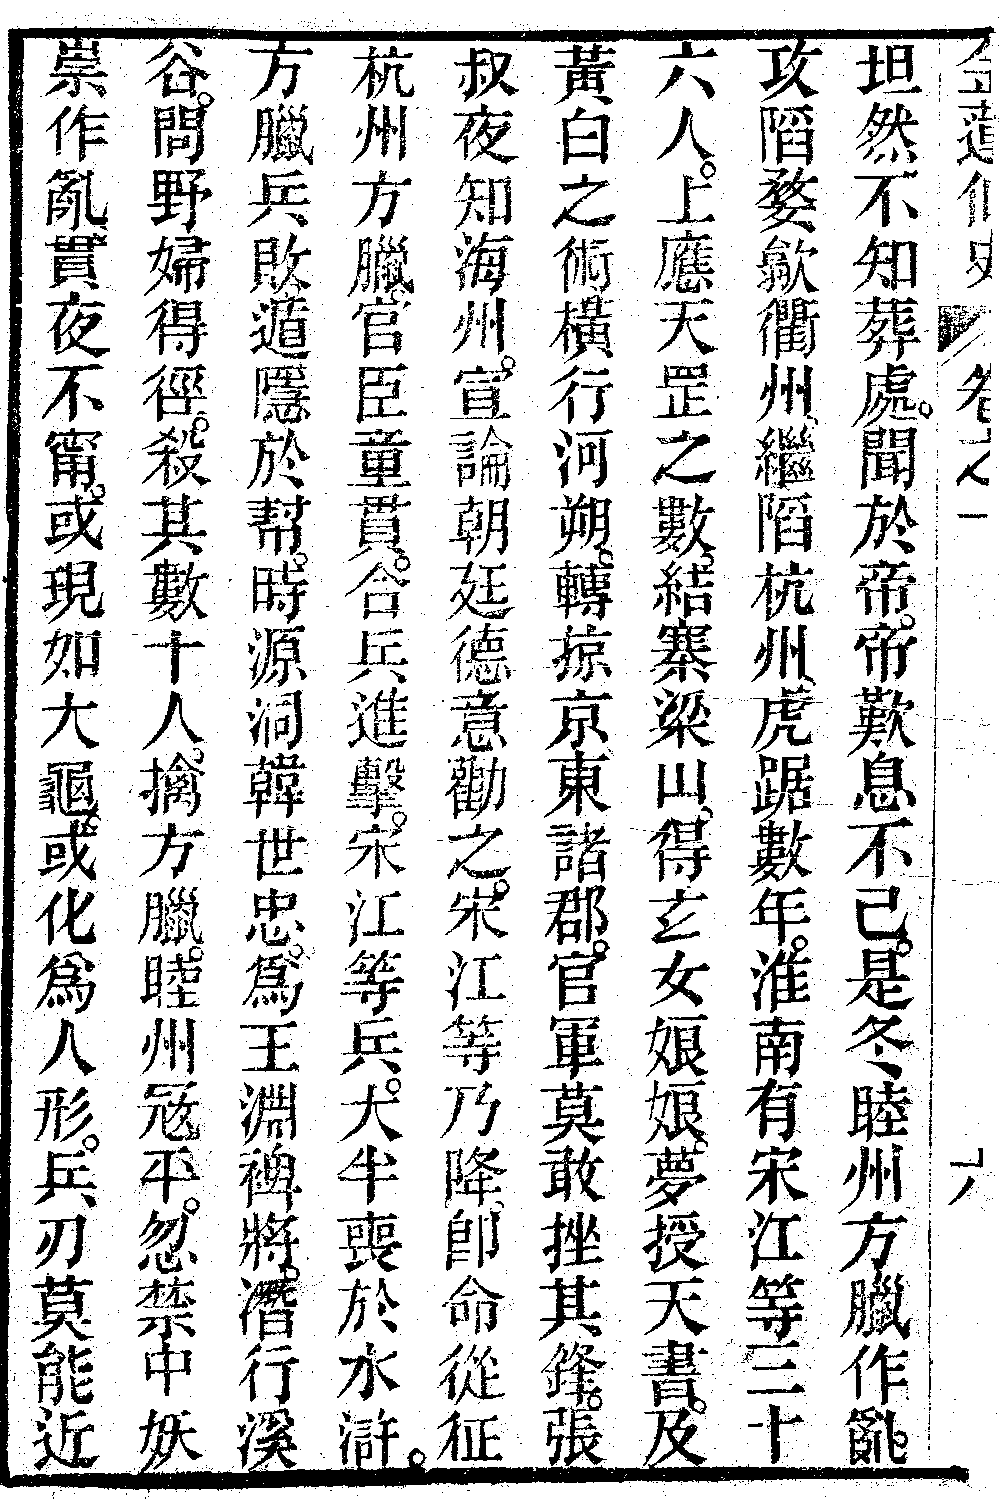 坦然不知葬處。聞於帝。帝歎息不已。是冬睦州方臘作亂。
攻陷婺歙衢州、繼陷杭州、虎踞數年。淮南有宋江等三十
六人。上應天罡之數。結寨梁山。得玄女娘娘。夢授天書。及
黃白之術、橫行河朔。轉掠京東諸郡。官軍莫敢挫其鋒。張
叔夜知海州。宣諭朝廷德意勸之。宋江等乃降。卽命從征
杭州方臘、官臣童貫。合兵進擊。宋江等兵。大半喪於水滸。
方臘兵敗遁隱於幫。時源洞韓世忠。爲王淵裨將。潛行溪
谷。問野婦得徑。殺其數十人。擒方臘。睦州寇平。忽禁中妖
祟作亂、貫夜不甯。或現如大龜、或化爲人形。兵刃莫能近
卷之一